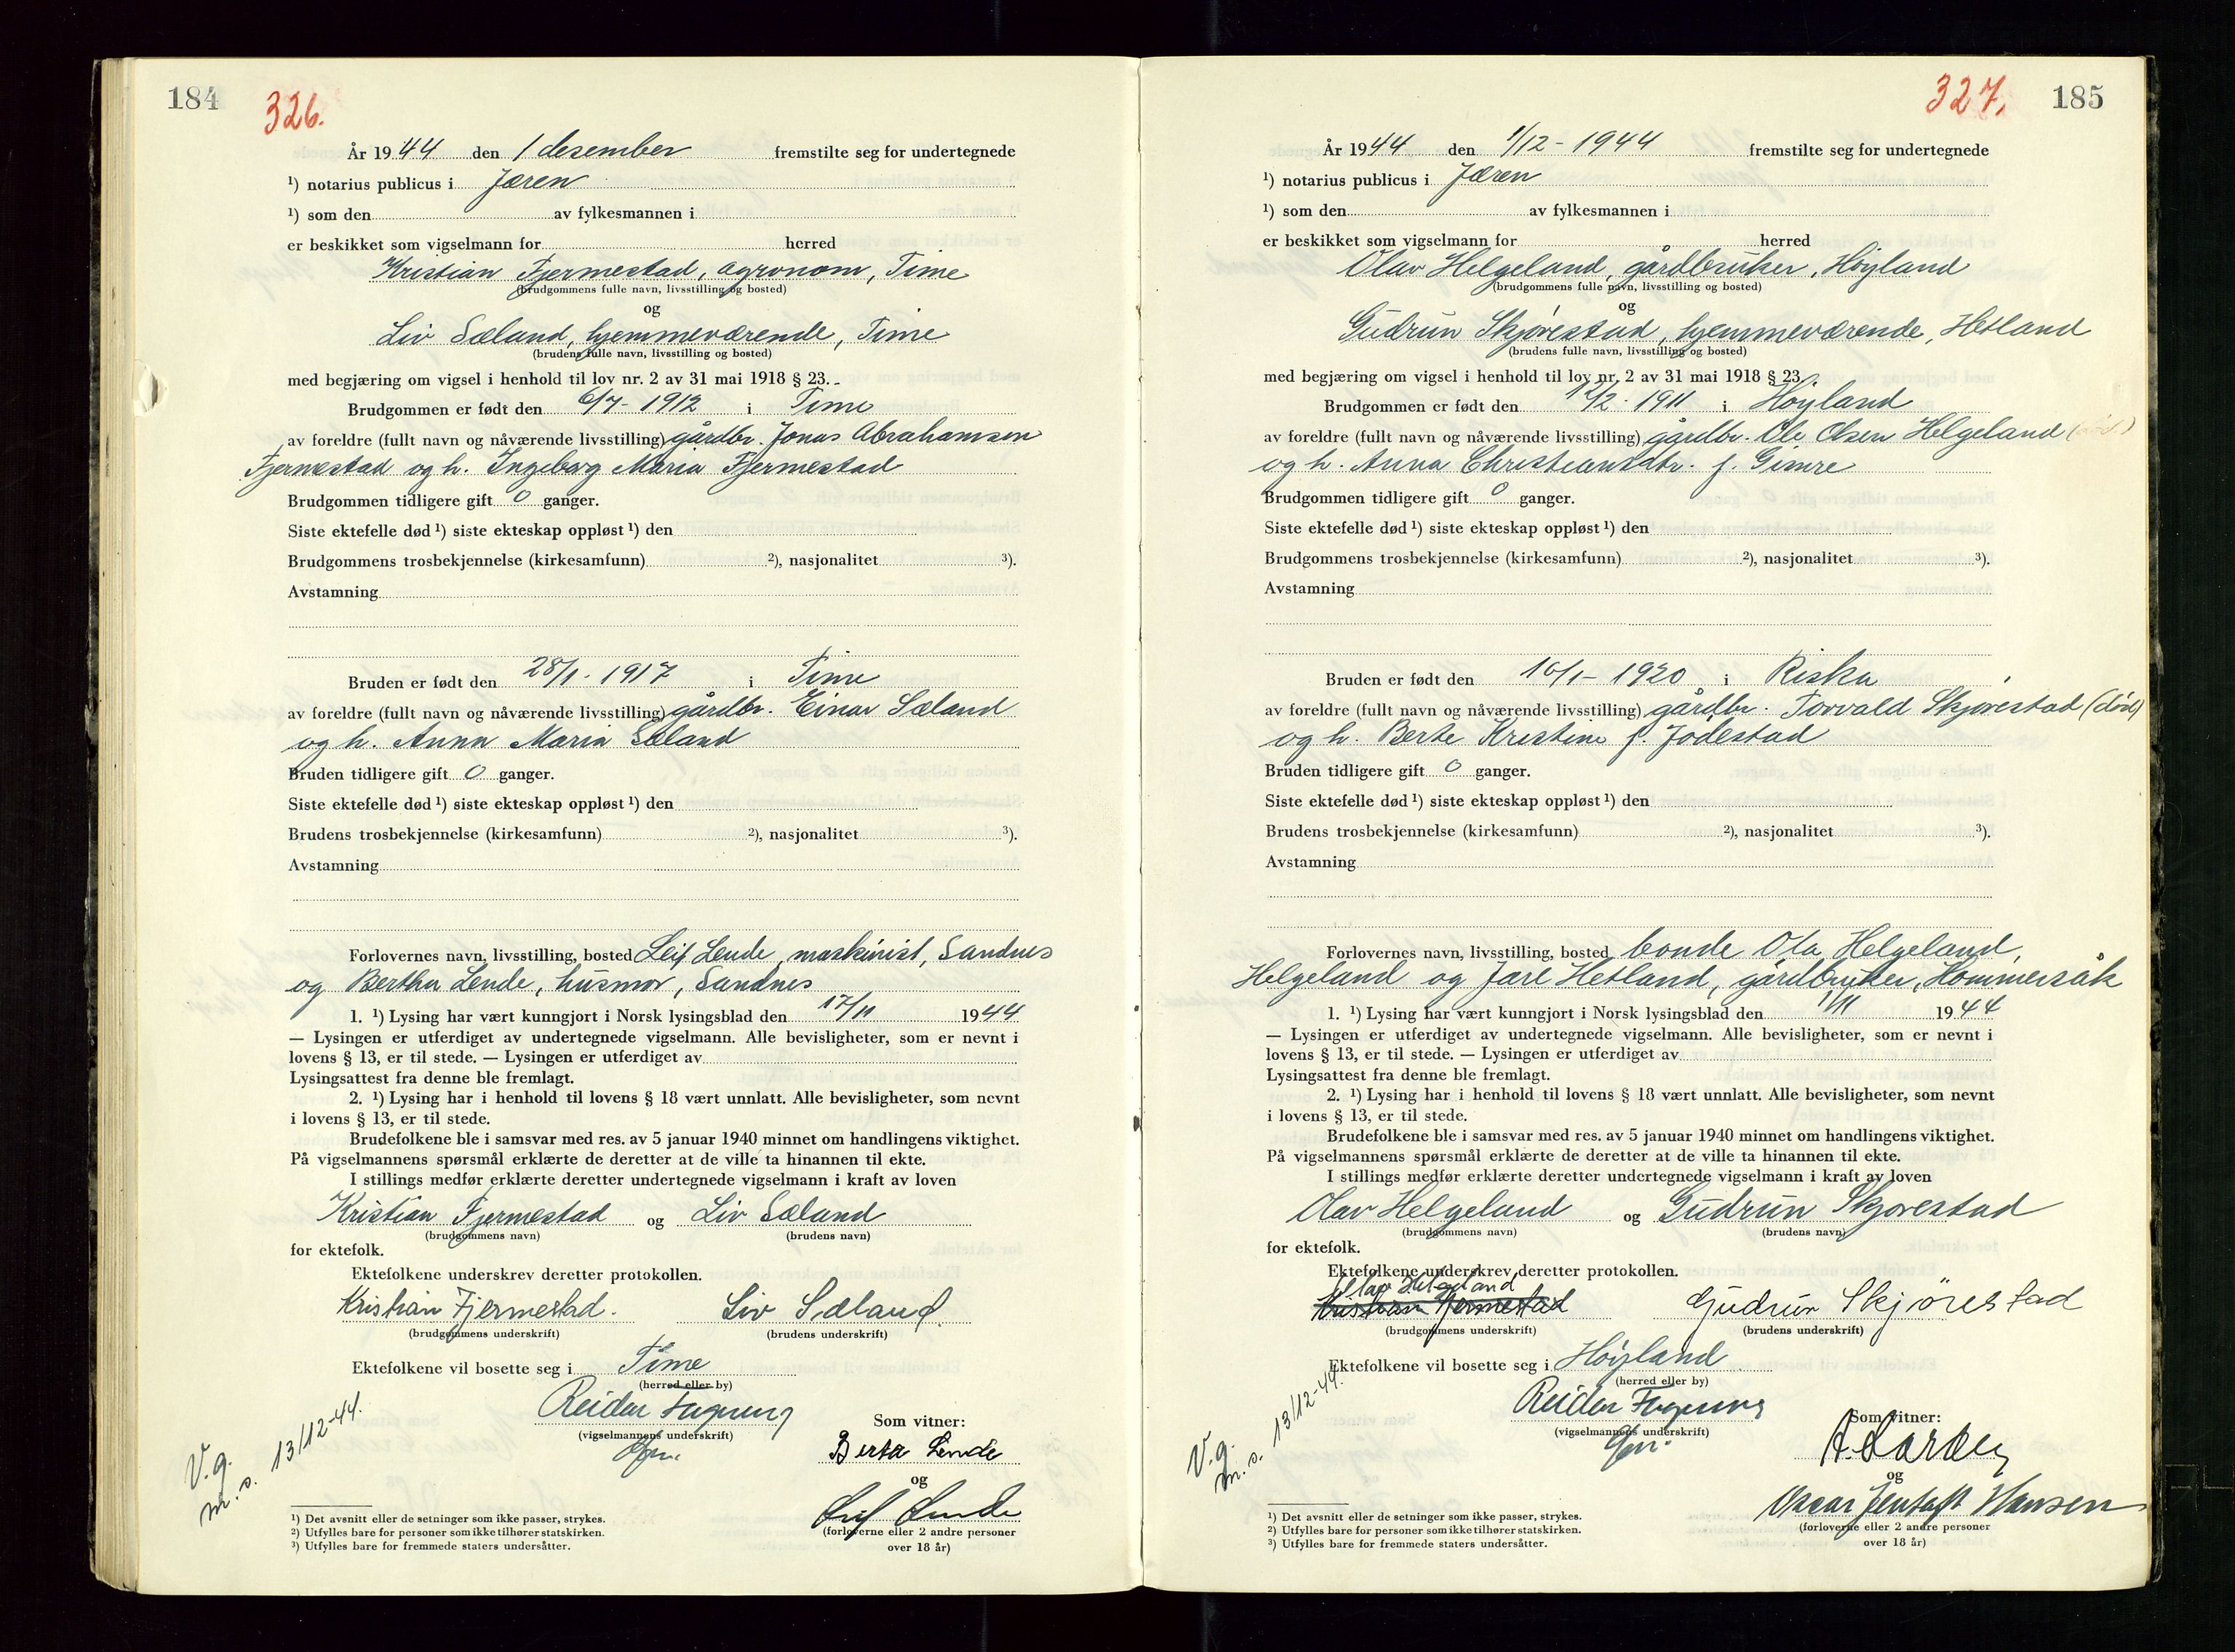 184
326.
År 1944 den 1 desember fremstilte seg for undertegnede
¹) notarius publicus i Jæren
¹) som den av fylkesmannen i
er beskikket som vigselmann for herred
Kristian Fjermestad, agronom, Time
(brudgommens fulle navn, livsstilling og bosted)
og
Liv Sæland, hjemmeværende, Time
(brudens fulle navn, livsstilling og bosted)
med begjæring om vigsel i henhold til lov nr. 2 av 31 mai 1918 § 23.
Brudgommen er født den 6/7 - 1912 i Time
av foreldre (fullt navn og nåværende livsstilling) gårdbr. Jonas Abrahamsen
Fjermestad og h. Ingeborg Maria Fjermestad
Brudgommen tidligere gift 0 ganger.
Siste ektefelle død ¹) siste ekteskap oppløst ¹) den
Brudgommens trosbekjennelse (kirkesamfunn) ²), nasjonalitet ³).
Avstamning
Bruden er født den 28/1 - 1917 i Time
av foreldre (fullt navn og nåværende livsstilling) gårdbr. Einar Sæland
og h. Anna Maria Sæland
Bruden tidligere gift 0 ganger.
Siste ektefelle død ¹) siste ekteskap oppløst ¹) den
Brudens trosbekjennelse (kirkesamfunn) ²), nasjonalitet ³).
Avstamning
Forlovernes navn, livsstilling, bosted Leif Lende, maskinist, Sandnes
og Bertha Lende, husmor, Sandnes
1. ¹) Lysing har vært kunngjort i Norsk lysingsblad den 17/11 1944
— Lysingen er utferdiget av undertegnede vigselmann. Alle bevisligheter, som er nevnt i
lovens § 13, er til stede. — Lysingen er utferdiget av
Lysingsattest fra denne ble fremlagt.
2. ¹) Lysing har i henhold til lovens § 18 vært unnlatt. Alle bevisligheter, som nevnt
i lovens § 13, er til stede.
Brudefolkene ble i samsvar med res. av 5 januar 1940 minnet om handlingens viktighet.
På vigselmannens spørsmål erklærte de deretter at de ville ta hinannen til ekte.
I stillings medfør erklærte deretter undertegnede vigselmann i kraft av loven
Kristian Fjermestad og Liv Sæland
(brudgommens navn) (brudens navn)
for ektefolk.
Ektefolkene underskrev deretter protokollen.
Kristian Fjermestad. Liv Sæland.
(brudgommens underskrift) (brudens underskrift)
Ektefolkene vil bosette seg i Time
(herred eller by)
Reidar
(vigselmannens underskrift)
Som vitner:
Berta Lende
og
Leif Lende
(forloverne eller 2 andre personer
over 18 år)
V.g.
m. s. 13/12-44.
¹) Det avsnitt eller de setninger som ikke passer, strykes.
²) Utfylles bare for personer som ikke tilhører statskirken.
³) Utfylles bare for fremmede staters undersåtter.
327.
185
År 1944 den 1/12 - 1944 fremstilte seg for undertegnede
¹) notarius publicus i Jæren
¹) som den av fylkesmannen i
er beskikket som vigselmann for herred
Olav Helgeland, gårdbruker, Høyland
(brudgommens fulle navn, livsstilling og bosted)
og
Gudrun Skjørestad, hjemmeværende, Hetland
(brudens fulle navn, livsstilling og bosted)
med begjæring om vigsel i henhold til lov nr. 2 av 31 mai 1918 § 23.
Brudgommen er født den 12/2 - 1911 i Høyland
av foreldre (fullt navn og nåværende livsstilling) gårdbr. Ole Olsen Helgeland
og h. Anna Christiansdtr. f. Gimre
Brudgommen tidligere gift 0 ganger.
Siste ektefelle død ¹) siste ekteskap oppløst ¹) den
Brudgommens trosbekjennelse (kirkesamfunn) ²), nasjonalitet ³).
Avstamning
Bruden er født den 10/1 - 1920 i Riska
av foreldre (fullt navn og nåværende livsstilling) gårdbr. Torvald Skjørestad (død)
og h. Berte Kristine f. Jødestad
Bruden tidligere gift 0 ganger.
Siste ektefelle død ¹) siste ekteskap oppløst ¹) den
Brudens trosbekjennelse (kirkesamfunn) ²), nasjonalitet ³).
Avstamning
Forlovernes navn, livsstilling, bosted bonde Ola Helgeland,
Helgeland og Jarl Hetland, gårdbruker, Hommersåk
1. ¹) Lysing har vært kunngjort i Norsk lysingsblad den 1/11 1944
— Lysingen er utferdiget av undertegnede vigselmann. Alle bevisligheter, som er nevnt i
lovens § 13, er til stede. — Lysingen er utferdiget av
Lysingsattest fra denne ble fremlagt.
2. ¹) Lysing har i henhold til lovens § 18 vært unnlatt. Alle bevisligheter, som nevnt
i lovens § 13, er til stede.
Brudefolkene ble i samsvar med res. av 5 januar 1940 minnet om handlingens viktighet.
På vigselmannens spørsmål erklærte de deretter at de ville ta hinannen til ekte.
I stillings medfør erklærte deretter undertegnede vigselmann i kraft av loven
Olav Helgeland og Gudrun Skjørestad
(brudgommens navn) (brudens navn)
for ektefolk.
Ektefolkene underskrev deretter protokollen.
Olav Helgeland
Kristian Fjermestad Gudrun Skjørestad
(brudgommens underskrift) (brudens underskrift)
Ektefolkene vil bosette seg i Høyland
(herred eller by)
Reidar
(vigselmannens underskrift)
Som vitner:
og
Oscar Jentoft Hansen
(forloverne eller 2 andre personer
over 18 år)
V.g.
m. s. 13/12-44.
¹) Det avsnitt eller de setninger som ikke passer, strykes.
²) Utfylles bare for personer som ikke tilhører statskirken.
³) Utfylles bare for fremmede staters undersåtter.